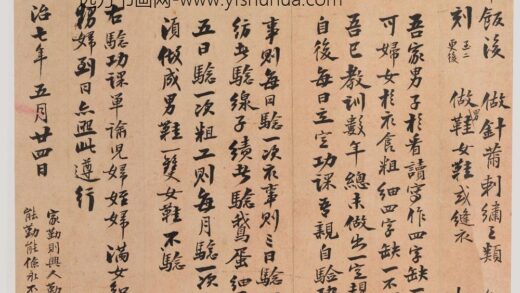 午飯後 做針黹刺繡之類
刻 二更後 做鞋女鞋或縫衣
吾家男子於看讀寫作四字缺一
可婦女於衣食粗細四字缺一不
吾已教訓數年總未做出一定規
自後每日立定功課吾親自驗功
事則每日驗一次衣事則三日驗
紡者驗線子績者驗鵝蛋細
五日驗一次粗工則每月驗一次
須做成男鞋一雙女鞋不驗
右驗功課單諭兒婦姪婦滿女知
甥婦到日亦照此遵行
治七年五月廿四日
家勤則興人勤
能勤能儉永不
www.yfshuhua.com